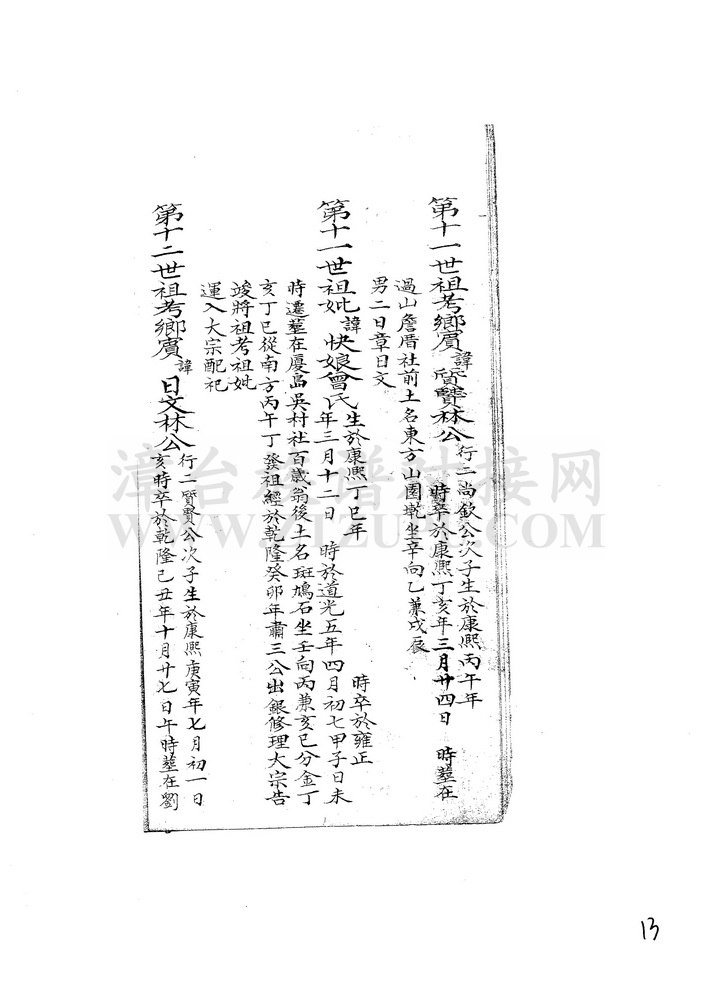 第十一世祖考鄉賓諱質賢林公行二尚欽公次子生於康熙丙午年
時卒於康熙丁亥年三月廿四日 時墓在
過山詹厝社前土名東方山園乾坐辛向乙兼戌辰
男二日章日文
第十一世祖妣諱快娘曾氏生於康熙丁巳年 時卒於雍正
年三月十二日 時於道光五年四月初七甲子日未
時遷墓在厦島吳村社百歲翁後土名斑鳩石坐壬向丙兼亥巳分金丁
亥丁巳從南方丙午丁發祖經於乾隆癸卯年肅三公出銀修理大宗告
竣將祖考祖妣
運入大宗配祀
第十二世祖考鄉賓諱日文林公行二質賢公次子生於康熙庚寅年七月初一日
亥時卒於乾隆己丑年十月廿七日午時墓在劉
漳台族谱对接网
WWW.ZTZUPU.COM
13